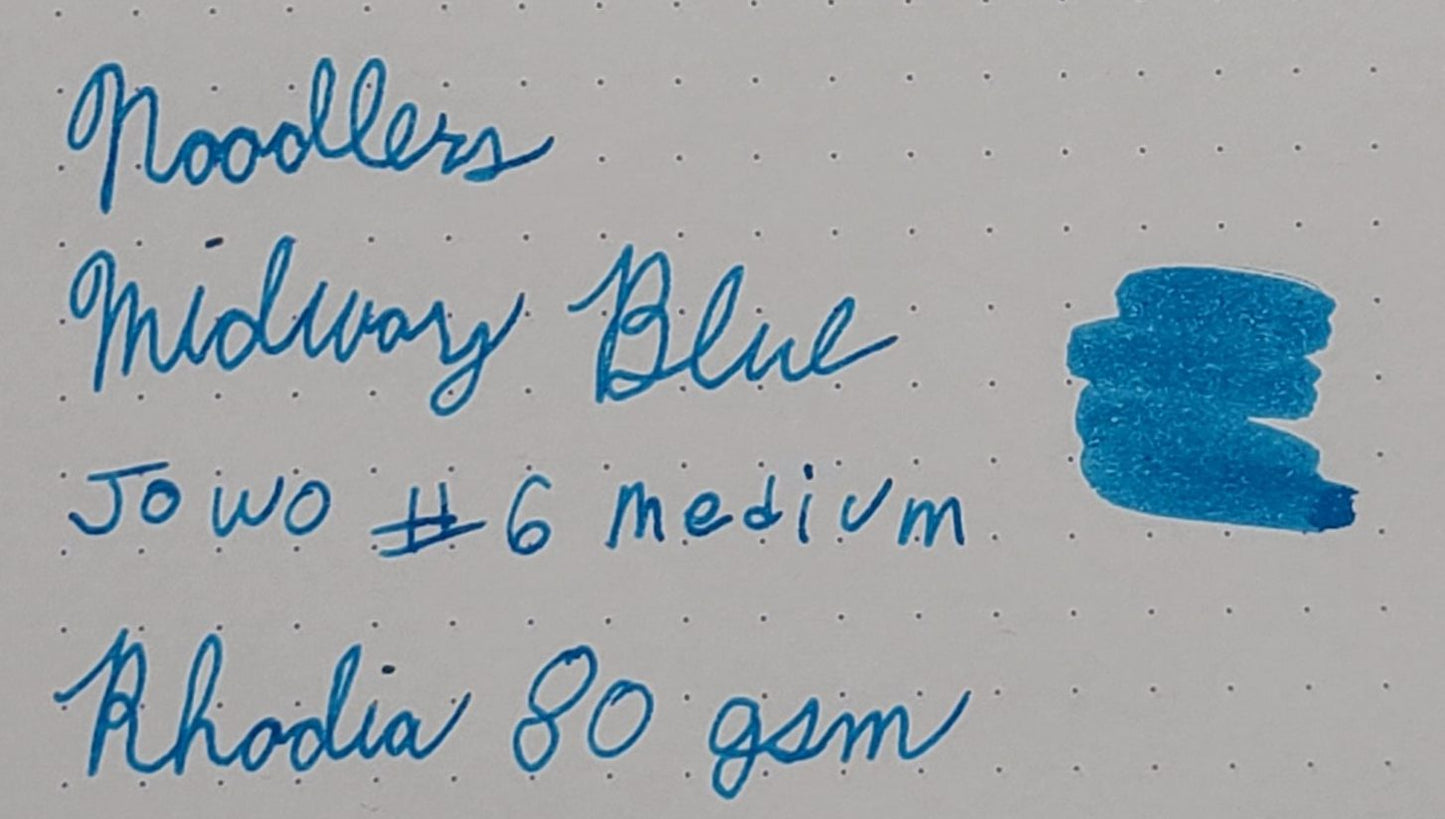 Noodlers
Midway Blue
Jowo #6 medium
Rhodia 80 gsm